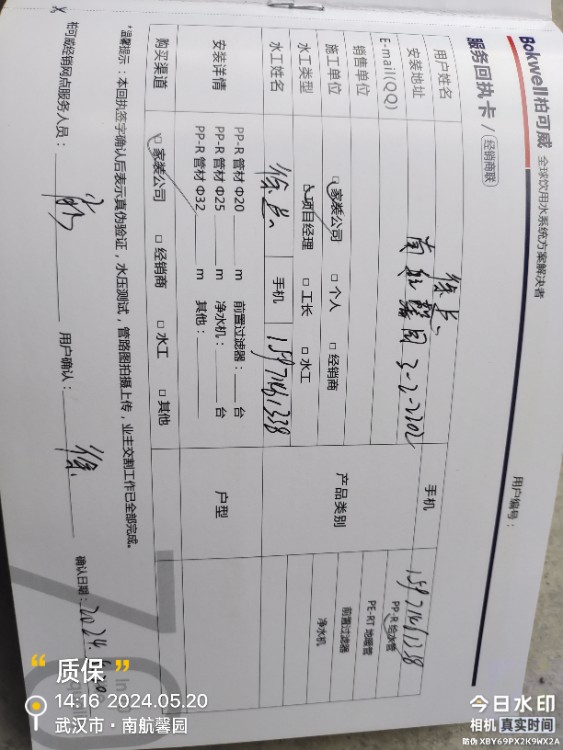 Bokwell柏可威 全球饮用水系统方案解决者
服务回执卡 / 经销商联
用户编号：
用户姓名 徐 手机 15971461338
安装地址 南航馨园3-2-2202
E-mail(QQ)
销售单位
产品类别 PP-R 给水管 PE-RT 地暖管 前置过滤器 净水机
施工单位 家装公司 个人 经销商
水工类型 项目经理 工长 水工
水工姓名 徐 手机 15971461338
安装详情
PP-R 管材 Φ20 m 前置过滤器： 台
PP-R 管材 Φ25 m 净水机： 台
PP-R 管材 Φ32 m 其他：
户型
购买渠道 家装公司 经销商 水工 其他
*温馨提示：本回执签字确认后表示真伪验证，水压测试，管路图拍摄上传，业主交割工作已全部完成。
柏可威经销网点服务人员： 用户确认： 徐 确认日期： 2024.
“ 质保 ”
14:16 2024.05.20
武汉市·南航馨园
今日水印
相机 真实时间
防伪 XBY69PX2K9WX2A